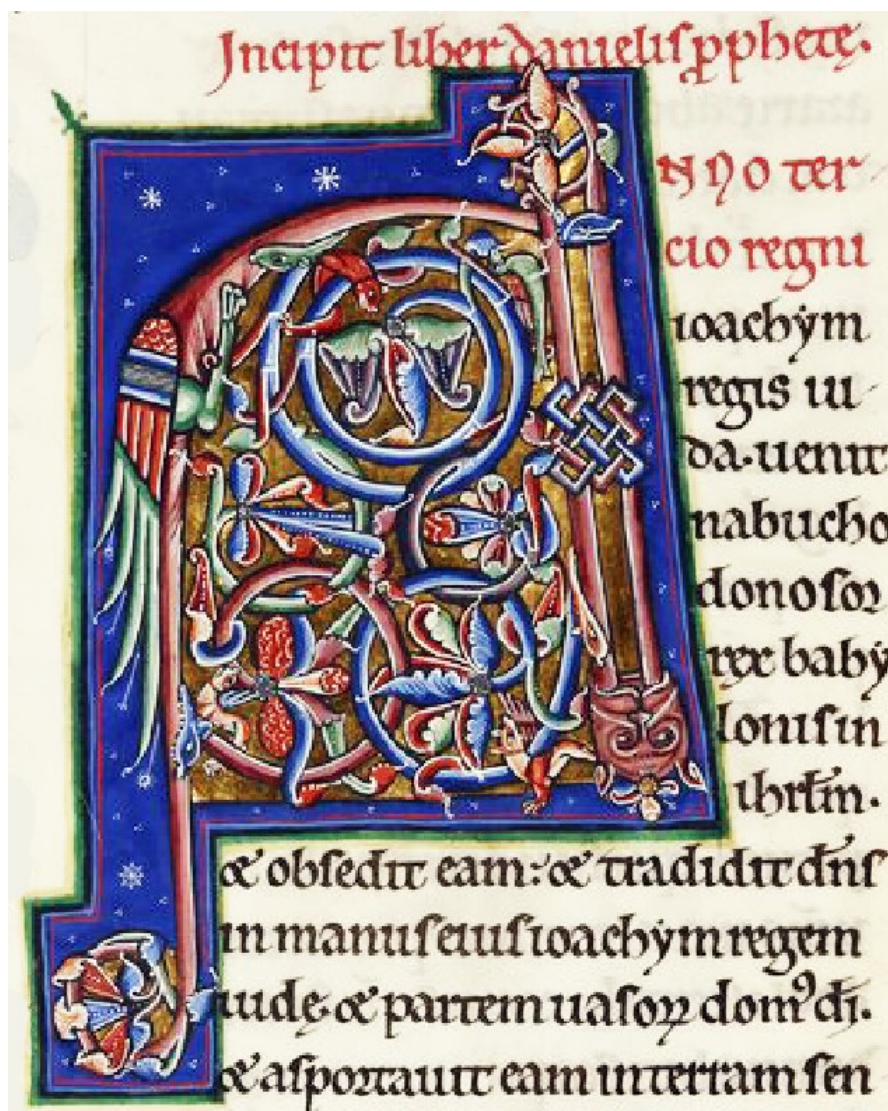 Incipit liber danielis ꝓphetę.
A
NNO ter
cio regni
ioachẏm
regis iu
da. uenit
nabucho
donosoꝛ
rex babẏ
lonis in
ihrłm.
⁊ obsedit eam: ⁊ tradidit dn̄s
in manus eius ioachẏm regem
iudę. ⁊ partem uasoꝝ domꝰ dı̄.
⁊ asportauit eam in terram sen